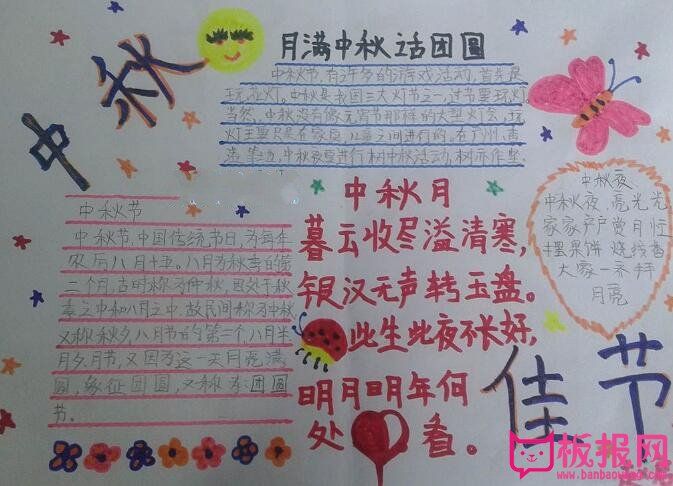 中秋
月满中秋话团圆
中秋节,有许多的游戏活动,首先是
玩花灯。中秋是我国三大灯节之一,过节要玩灯。
当然,中秋没有像元宵节那样的大型灯会,玩
灯主要只是在家庭,儿童之间进行的。在广州、南
中秋夜要进行树中秋活动,树亦作竖
中秋节
中秋节,中国传统节日,为每年
农历八月十五。八月为秋季的第
二个月,古时称为仲秋,因处于秋
季之中和八月之中,故民间称为中秋
又称秋夕,八月节的第三个,八月半
月夕,月节,又因为这一天月亮满
圆,象征团圆,又称为:团圆
节。
中秋月
暮云收尽溢清寒,
银汉无声转玉盘。
此生此夜不长好,
明月明年何
处看。
中秋夜
中秋夜,亮光光
家家户户赏月忙
摆果饼 烧线香
大家一齐拜
月亮
佳节
板报网
www.banbaowang.com